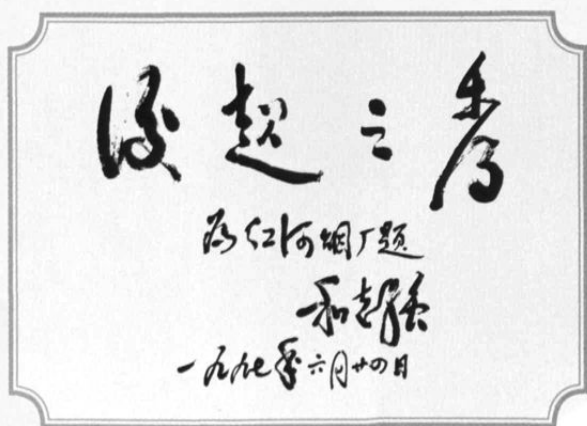 後起之秀
为红河烟厂题
和志强
一九九七年六月廿四日